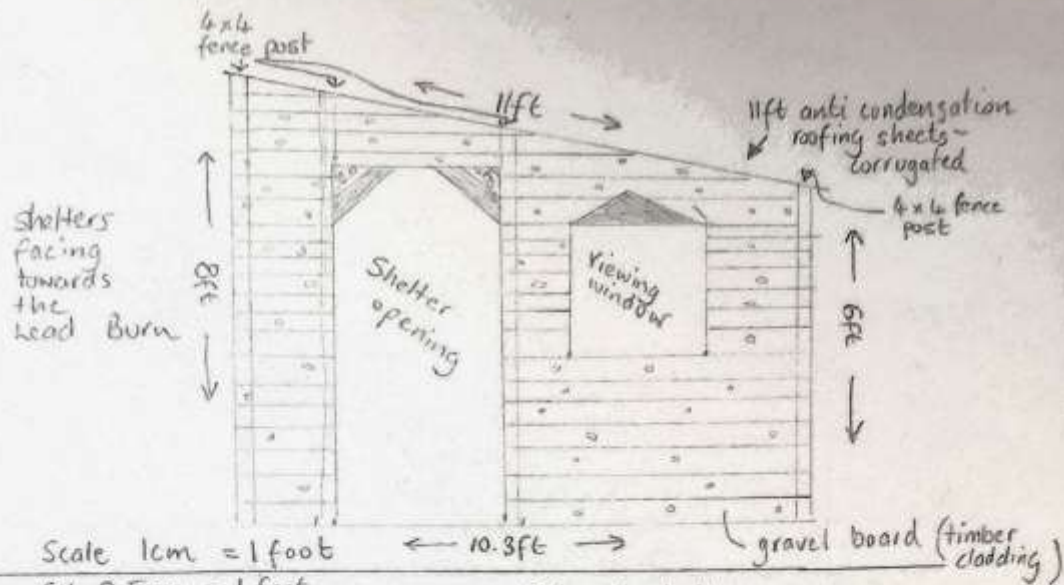 4x4
fence post
11ft
11ft anti condensation
roofing sheets -
corrugated
4x4 fence
post
shelters
facing
towards
the
Lead Burn
8ft
Shelter
opening
Viewing
window
6ft
Scale 1cm = 1 foot
10.3ft
gravel board (timber
cladding)